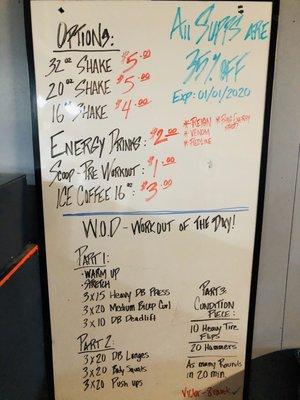 OPTIONS:
32oz SHAKE $5.00
20oz SHAKE $5.00
16oz SHAKE $4.00
All Supps ARE
35% OFF
Exp: 01/01/2020
ENERGY DRINKS: $2.00
* REIGN
* VENOM
* REDLINE
Scoop - Pre Workout: $1.00
ICE COFFEE 16oz: $3.00
W.O.D - WORKOUT OF THE DAY!
PART 1:
- WARM UP
- STRETCH
3 x 15 Heavy DB Press
3 x 20 Medium Bicep Curl
3 x 10 DB Deadlift
PART 2:
3 x 20 DB Lunges
3 x 20 Body Squats
3 x 20 Push ups
PART 3:
CONDITION
PIECE:
10 Heavy Tire
Flips
20 Hammers
As many Rounds
in 20 min